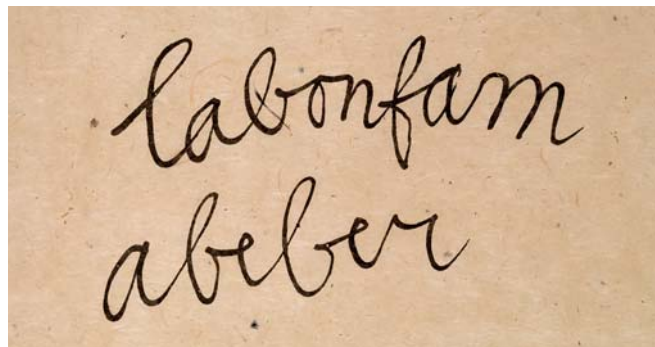 labonfam
abeber